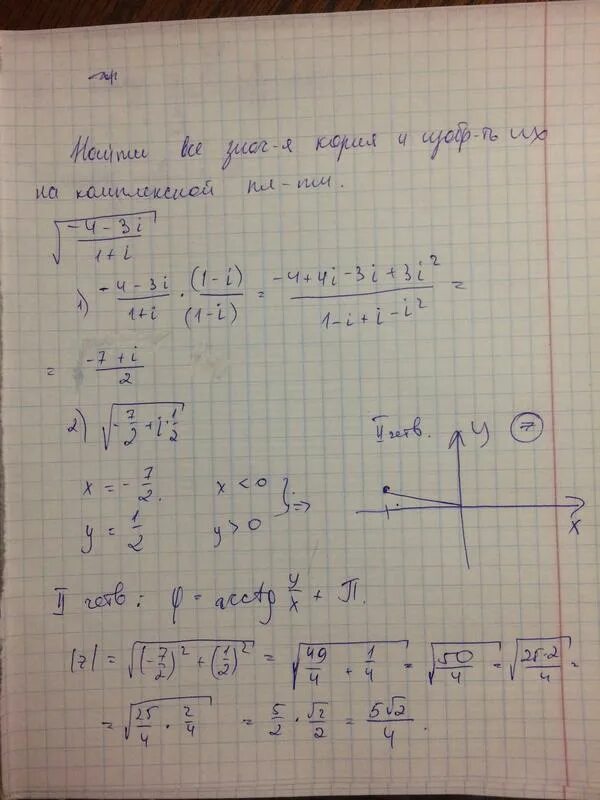 Найти все знач-я корня и изобр-ть их
на комплексной пл-ти.
√((-4-3i)/(1+i))
1) (-4-3i)/(1+i) · (1-i)/(1-i) = (-4+4i-3i+3i²)/(1-i+i-i²) =
= (-7+i)/2
2) √(-7/2+i·1/2)
II четв. y z
x
x = -7/2. x < 0
y = 1/2 y > 0 } ⇒
II четв: φ = arctg y/x + П.
|z| = √((-7/2)²+(1/2)²) = √(49/4 + 1/4) = √(50/4) = √(25·2/4) =
= √(25/4 · 2/4) = 5/2 · √2/2 = 5√2/4.